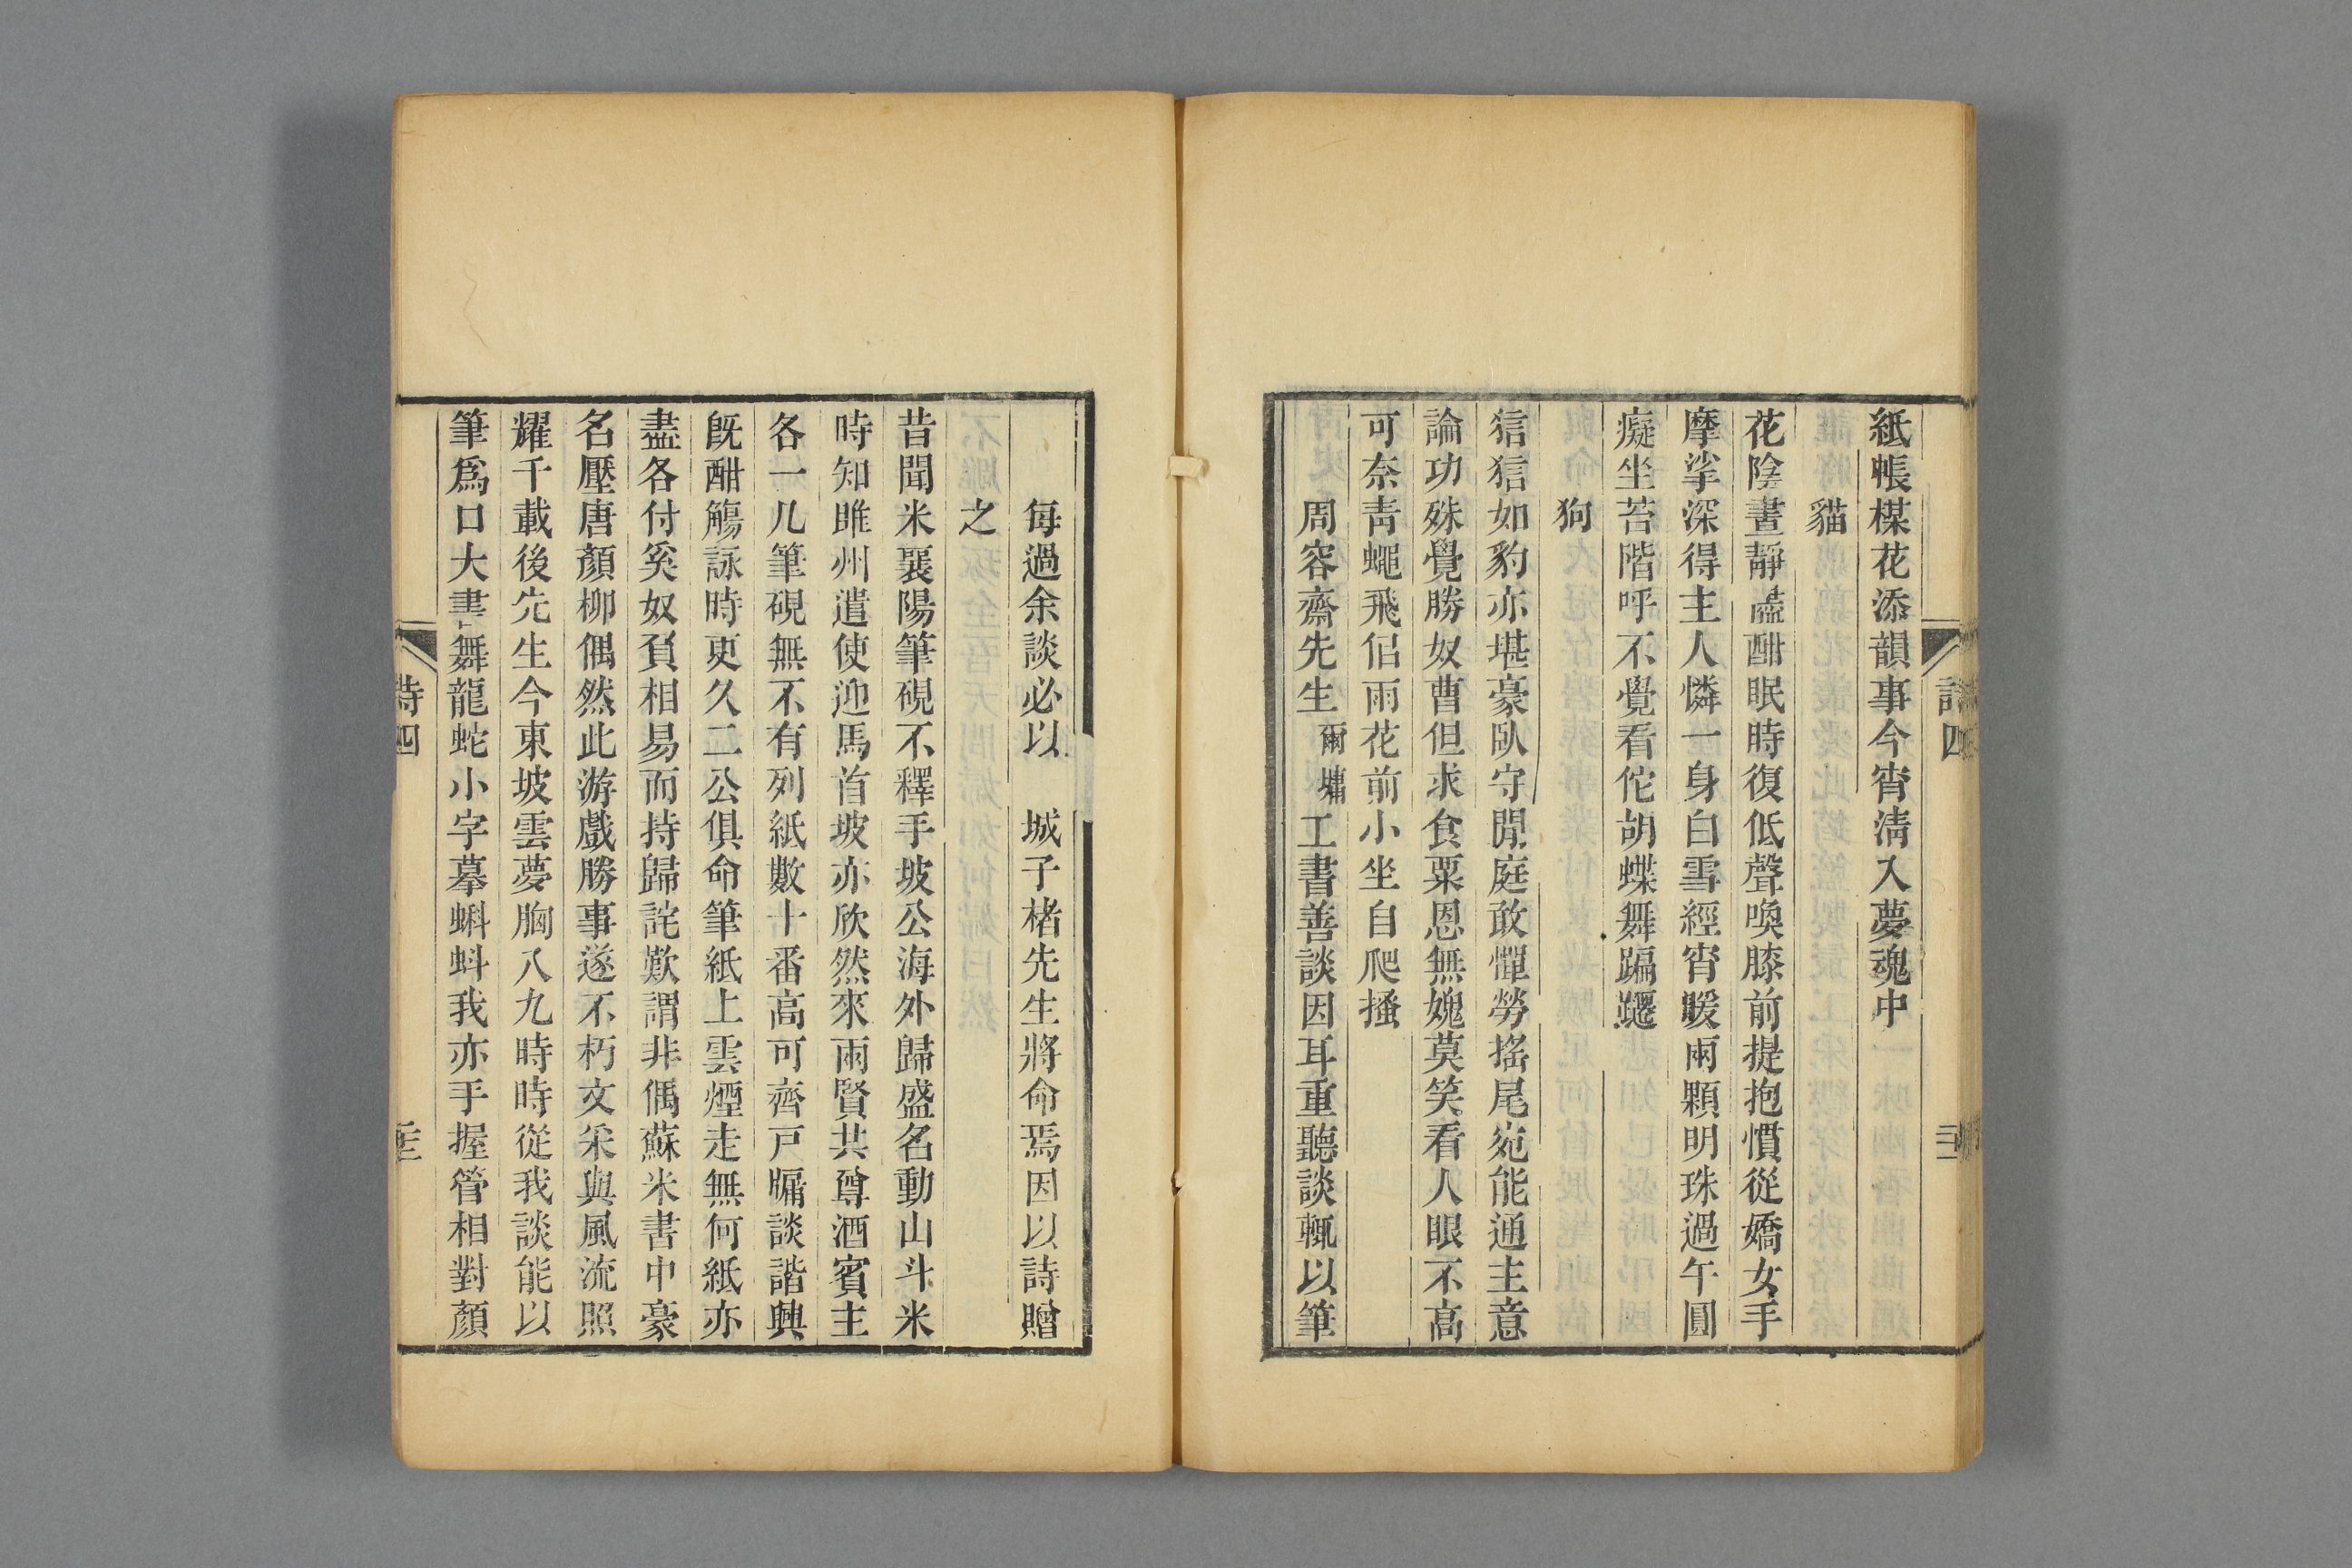 紙帳楳花添韻事今宵淸入夢魂中
貓
花陰晝靜盡酣眠時復低聲喚膝前提抱慣從嬌女手
摩挲深得主人憐一身白雪經宵暖兩顆明珠過午圓
癡坐苔階呼不覺看佗胡蝶舞蹁躚
狗
狺狺如豹亦堪豪臥守閒庭敢憚勞搖尾宛能通主意
論功殊覺勝奴曹但求食粟恩無媿莫笑看人眼不高
可奈靑蠅飛侶雨花前小坐自爬搔
周容齋先生爾墉工書善談因耳重聽談輒以筆
詩四
每過余談必以 城子楮先生將命焉因以詩贈
之
昔聞米襄陽筆硯不釋手坡公海外歸盛名動山斗米
時知雎州遣使迎馬首坡亦欣然來兩賢共尊酒賓主
各一几筆硯無不有列紙數十番高可齊戸牖談諧興
旣酣觴詠時更久二公俱命筆紙上雲煙走無何紙亦
盡各付奚奴負相易而持歸詫歎謂非偶蘇米書中豪
名壓唐顏柳偶然此游戲勝事遂不朽文采與風流照
耀千載後先生今東坡雲夢胸八九時時從我談能以
筆爲口大書舞龍蛇小字摹蝌蚪我亦手握管相對顏
詩四